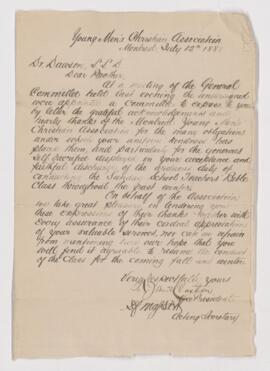 Young Men's Christian Association
Montreal July 12th 188
Dr Dawson, L L D
Dear Brother,
At a meeting of the General
Committee held this evening the undersigned
were appointed a Committee to express to you
by letter the grateful acknowledgement and
hearty thanks of the Montreal Young Men's
Christian Association for the many obligations
under which your uniform kindness has
placed them, and particularly for the generous
self sacrifice displayed in your acceptance and
faithful discharge of the arduous duties of
conducting the Sabbath School Teachers Bible
Class throughout the past winter.
On behalf of the Association
we take great pleasure in endorsing you
these expressions of their thanks together with
every assurance of their cordial appreciation
of your valuable services, nor can we refrain
from mentioning our hope that you
will find it agreeable to resume the conduct
of the Class for the coming fall and winter.
Very respectfully yours
Vice President
Acting Secretary